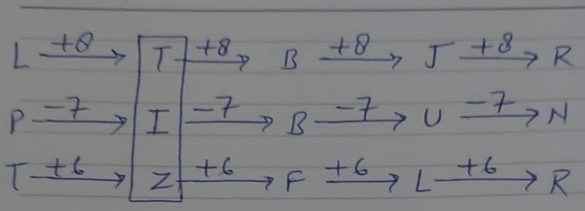 L +8 T +8 B +8 J +8 R
P -7 I -7 B -7 U -7 N
T +6 Z +6 F +6 L +6 R